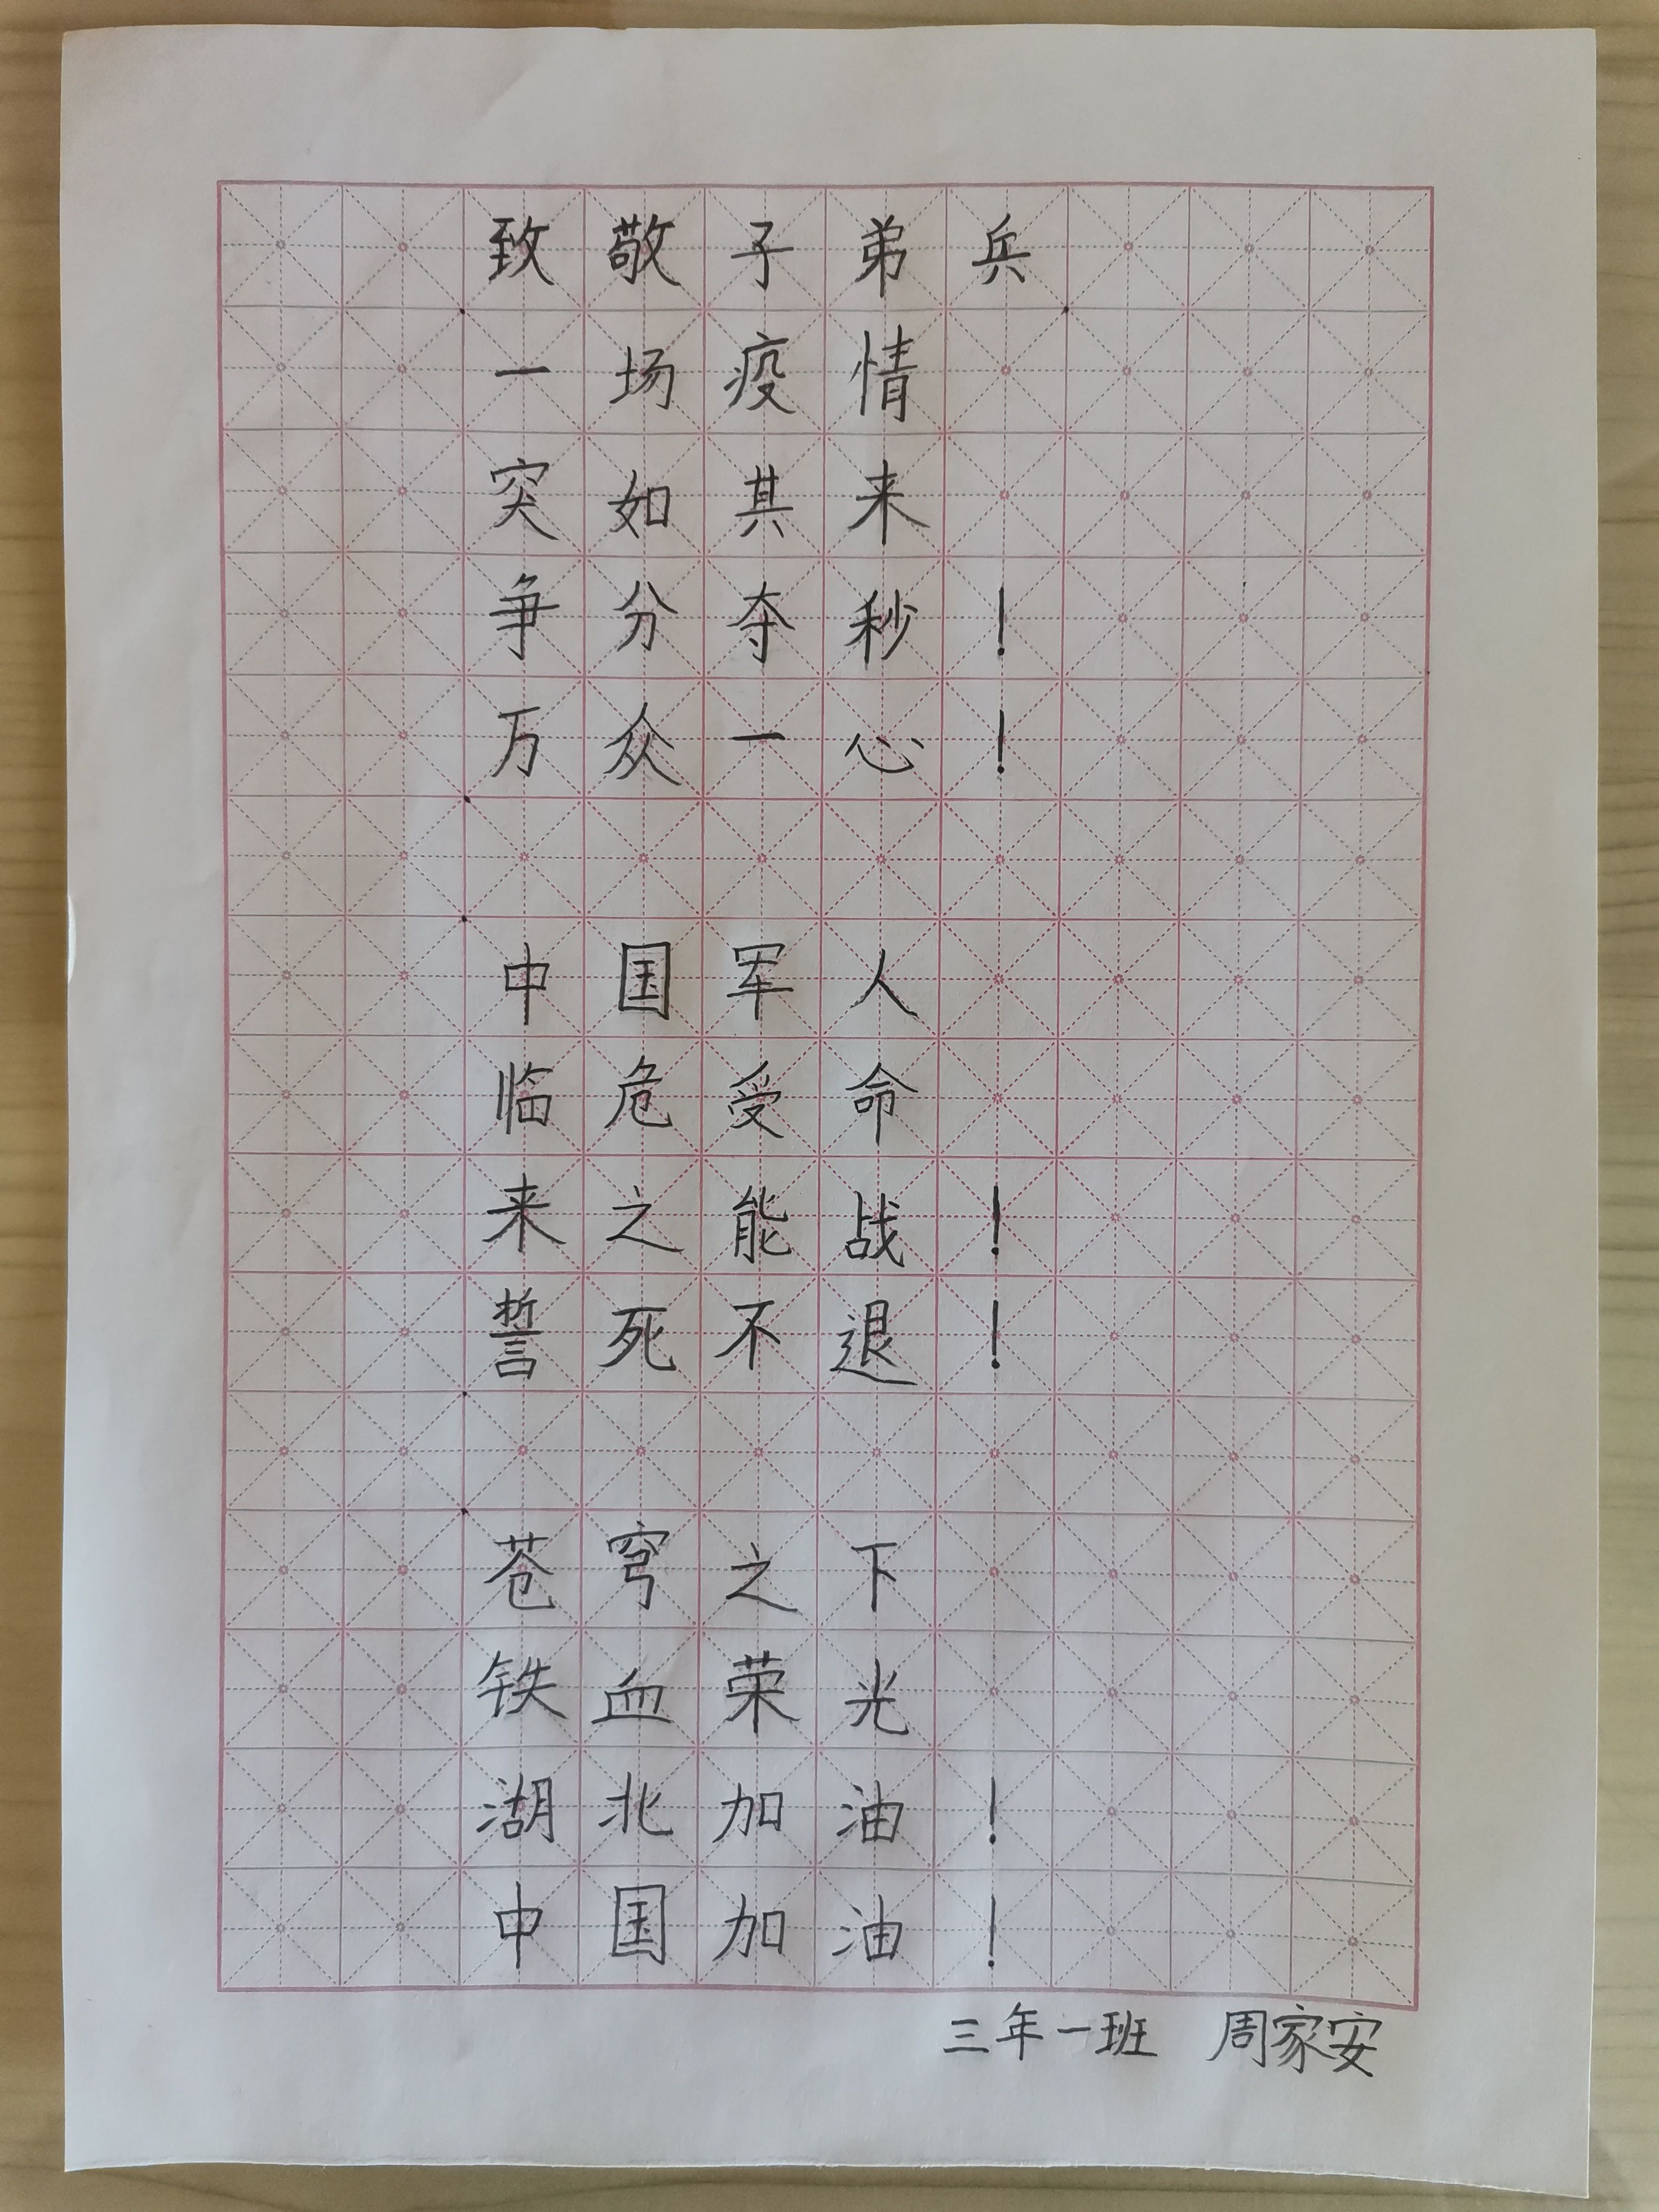 致敬子弟兵
一场疫情
突如其来
争分夺秒！
万众一心！
中国军人
临危受命
来之能战！
誓死不退！
苍穹之下
铁血荣光
湖北加油！
中国加油！
三年一班 周家安